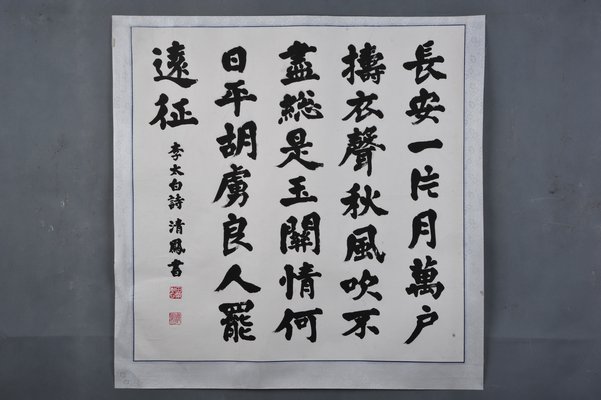 長安一片月萬户
擣衣聲秋風吹不
盡総是玉關情何
日平胡虜良人罷
遠征
李太白詩清鳳書